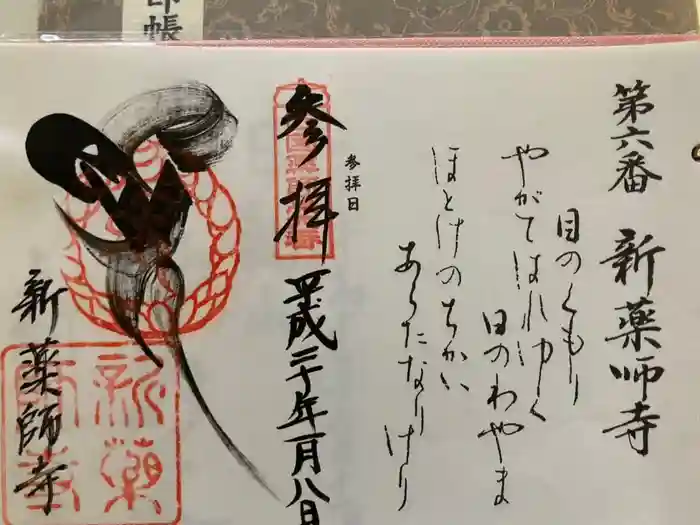 印帳
第六番 新薬師寺
目のくもり
やがてはれゆく
日のわやま
ほとけのちかい
あらたなりけり
参拝日
参拝 平成三十年一月八日
新薬師寺